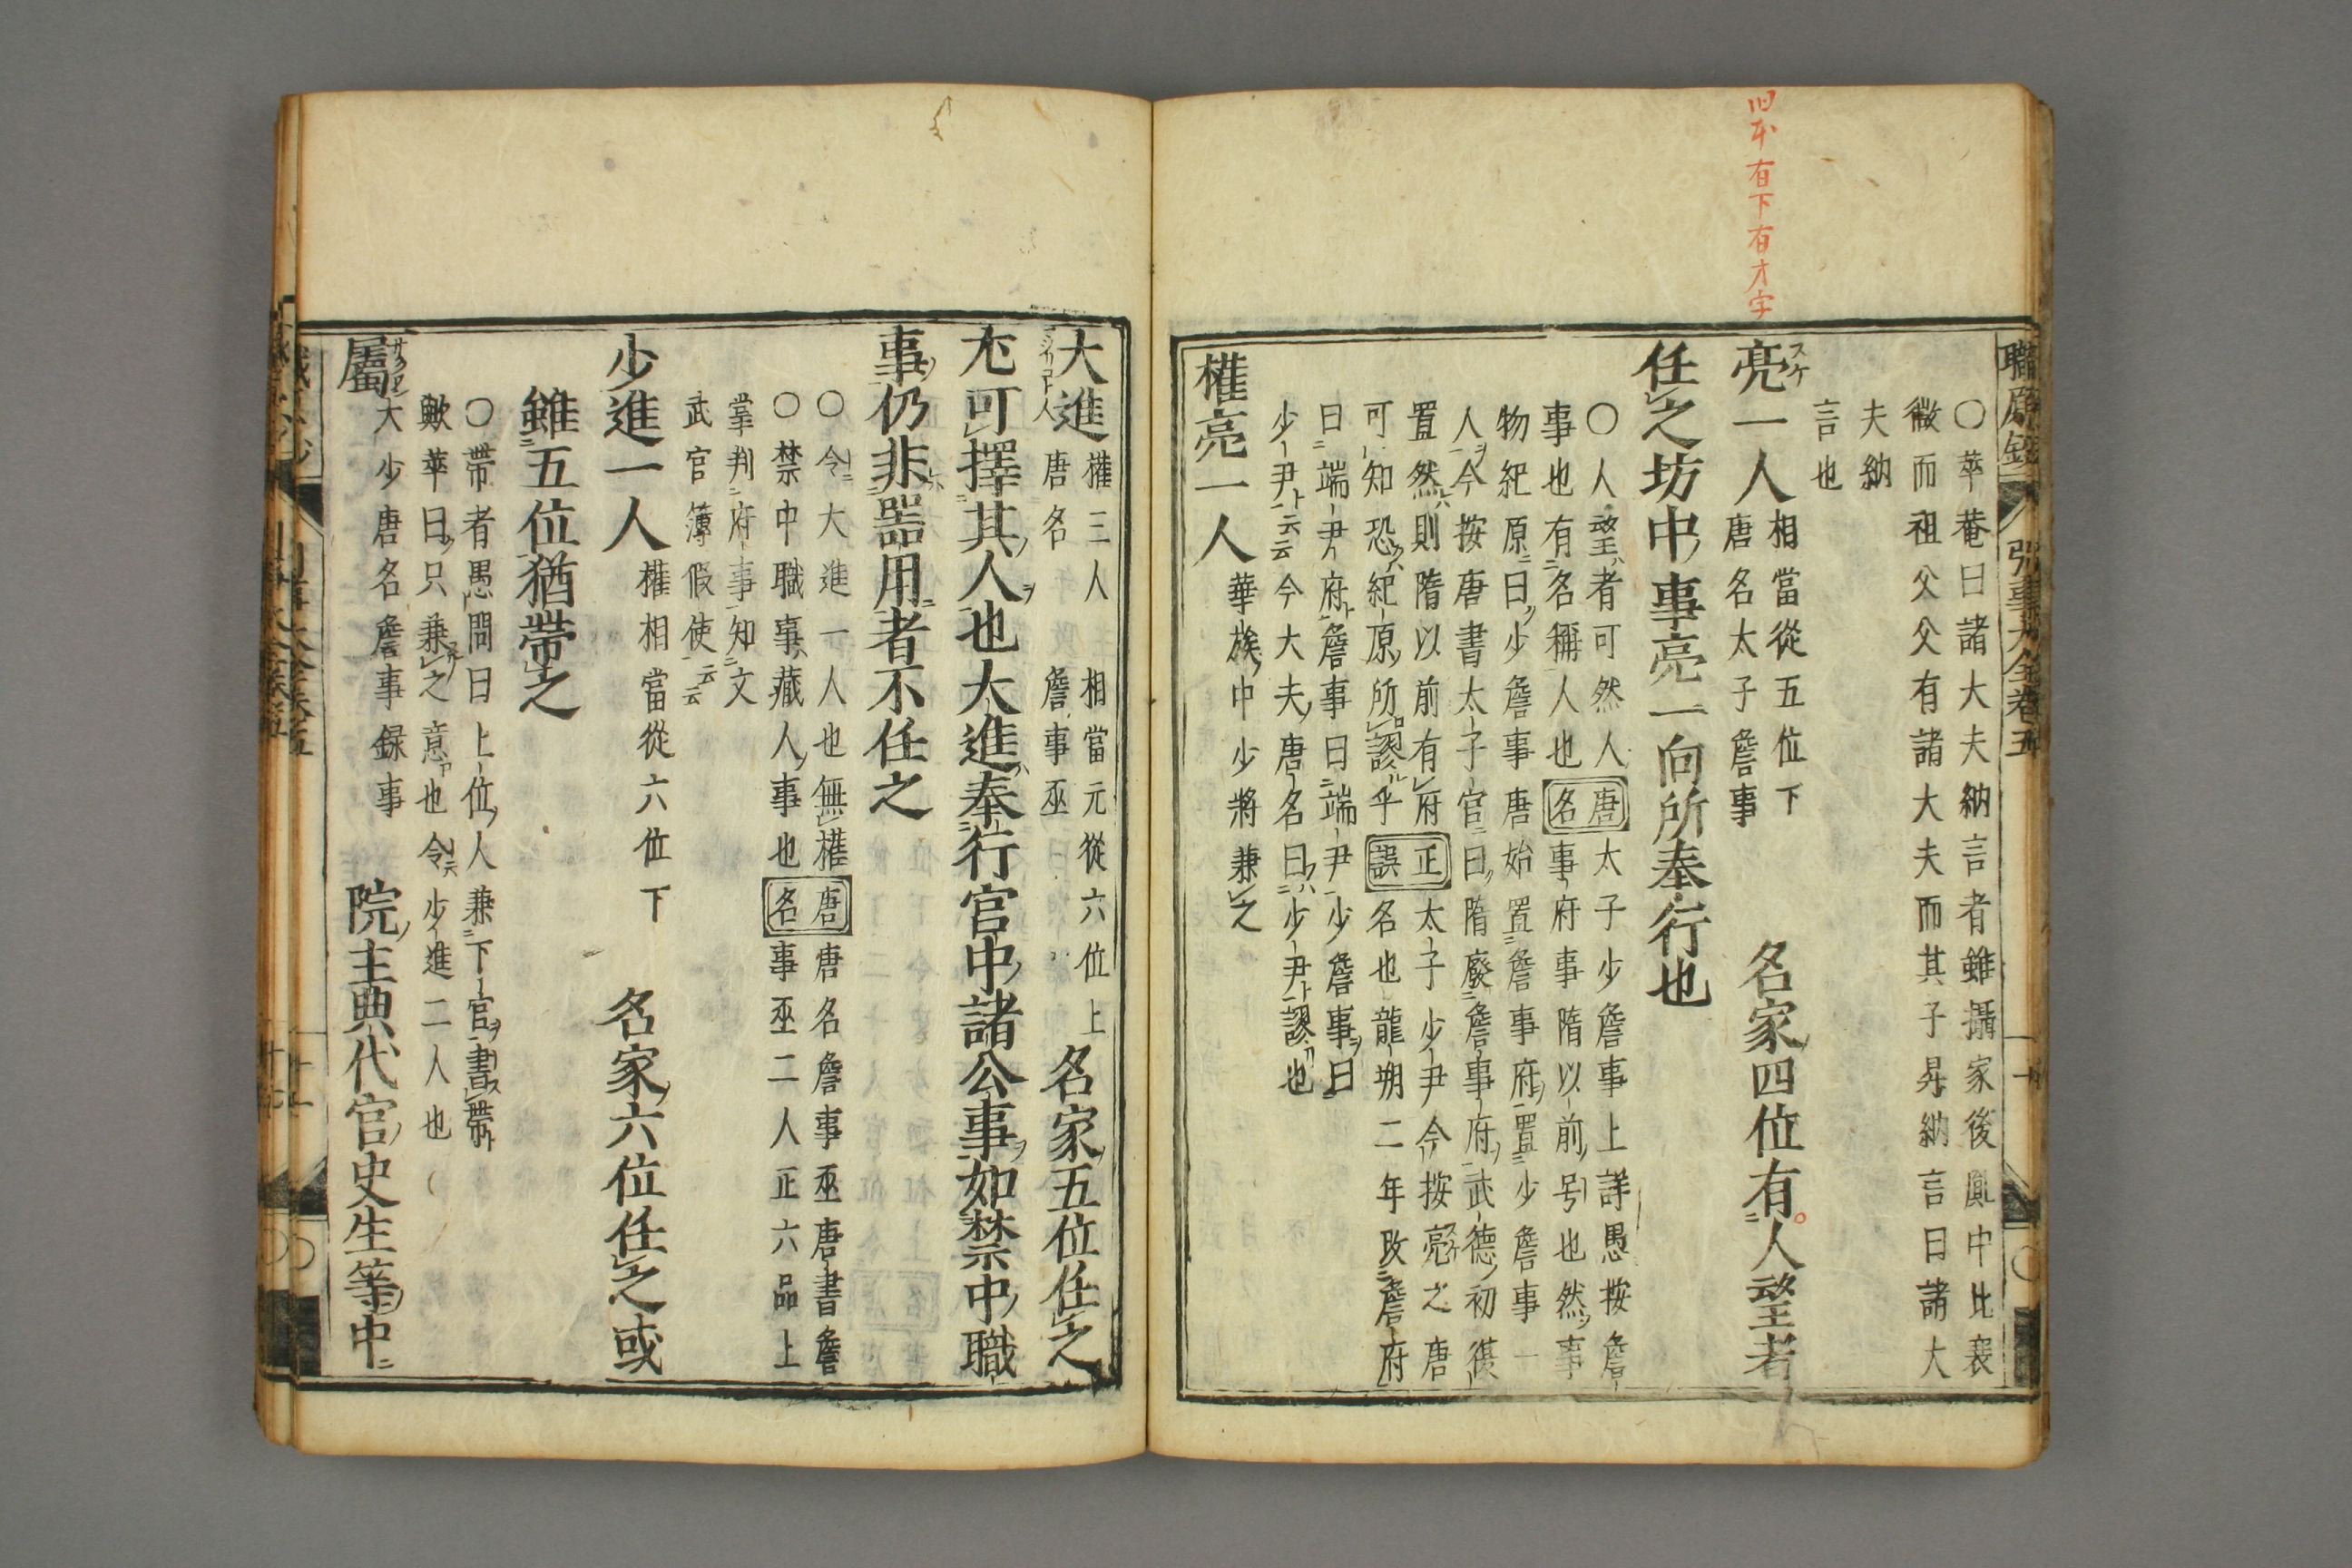 旧本有下有才字
〇華菴曰諸大夫納言者雖攝家後胤中比衰
微而祖父父有諸大夫而其子昇納言曰諸大
夫納
言也
亮一人
相當從五位下
唐名太子詹事
名家四位有人望者
スケ
任之坊中事亮一向所奉行也
〇人望者可然人唐名太子少詹事上詳愚按詹
事也有名稱人也事府事隋以前号也然事
物紀原曰少詹事唐始置詹事府置少詹事一
人今按唐書太子官曰隋廢詹事府武德初復
置然則隋以前有府
可知恐紀原所謬乎
正誤
太子少尹今按亮之唐
名也龍朔二年改詹府
曰端尹府詹事曰端尹少詹事曰
少尹云云今大夫唐名曰少尹謬也
權亮一人
華族中少將兼之
大進
權三人
唐名
相當元從六位上
詹事丞
名家五位任之
尤可擇其人也大進奉行官中諸公事如禁中職
事仍非器用者不任之
〇令大進一人也無權
〇禁中職事藏人事也
唐名
唐名詹事丞唐書詹
事丞二人正六品上
掌判府事知文
武官簿假使云云
少進一人
權相當從六位下
名家六位任之或
雖五位猶帶之
〇帶者愚問曰上位人兼下官書帶
歟華曰只兼之意也令少進二人也
屬
大少唐名詹事録事
院主典代官史生等中